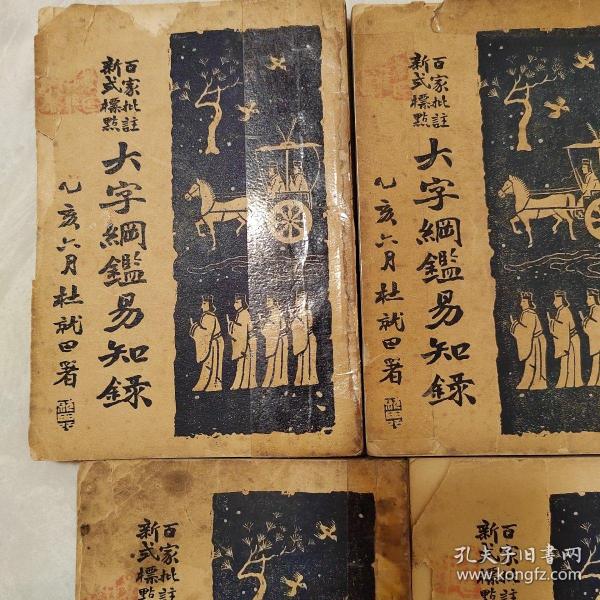 百家批註
新式標點
大字綱鑑易知錄
乙亥六月杜就田署
百家批註
新式標點
大字綱鑑易知錄
乙亥六月杜就田署
百家批註
新式標點
百家批註
新式標點
孔夫子旧书网
www.kongfz.com